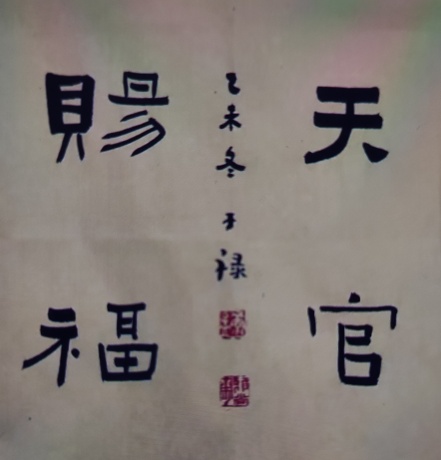 天官
賜福
乙未冬 于禄